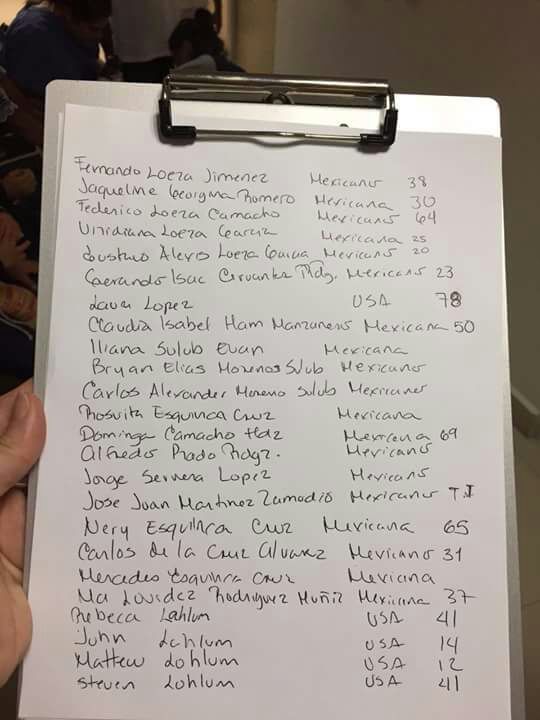 Fernando Loeza Jimenez Mexicano 38
Jaqueline Georgina Romero Mexicana 30
Federico Loeza Camacho Mexicano 64
Viridiana Loeza Garcia Mexicana 25
Gustavo Alexis Loeza Garcia Mexicano 20
Gerardo Isac Cervantes Rdgz. Mexicano 23
Laura Lopez USA 78
Claudia Isabel Ham Manzanero Mexicana 50
Iliana Sulub Euan Mexicana
Bryan Elias Moreno Sulub Mexicano
Carlos Alexander Moreno Sulub Mexicano
Rosvita Esquinca Cruz Mexicana
Dominga Camacho Hdz Mexicana 69
Alfredo Prado Rdgz. Mexicano
Jorge Lopez Mexicano
Jose Juan Martinez Zamodio Mexicano T.I
Nery Esquinca Cruz Mexicana 65
Carlos De la Cruz Alvarez Mexicano 31
Mercedes Esquinca Cruz Mexicana
Ma Lourdez Rodriguez Muñiz Mexicana 37
Rebeca Lohlum USA 41
John Lohlum USA 14
Mattew Lohlum USA 12
Steven Lohlum USA 41